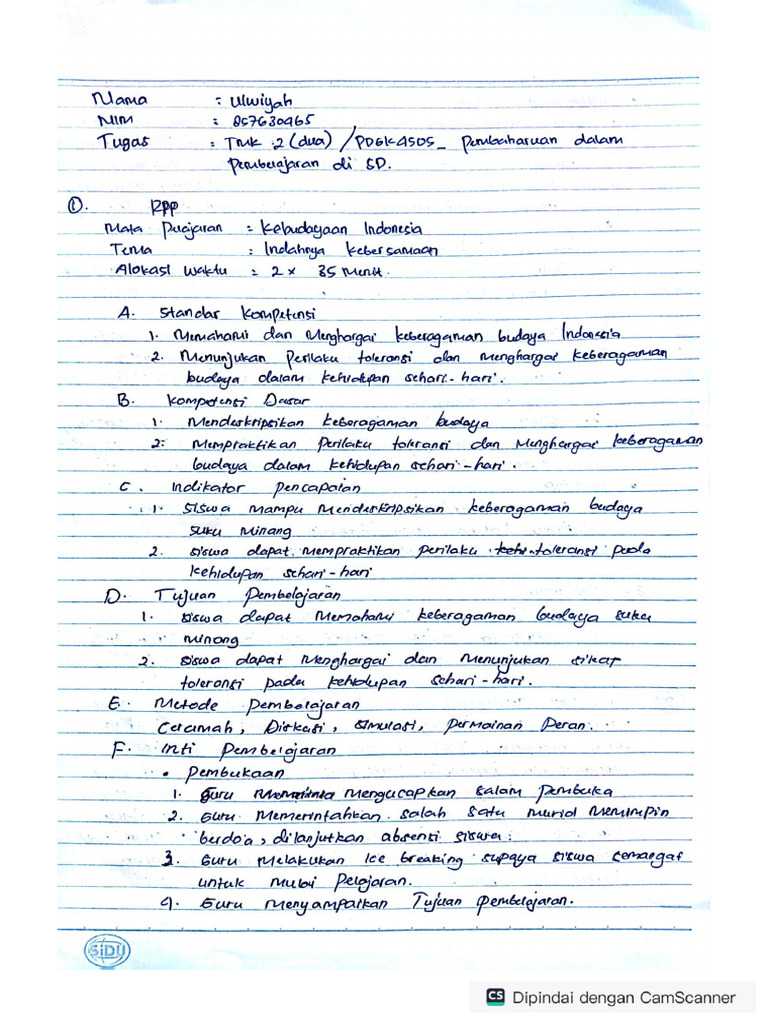 Nama : Ulwiyah
NIM : 857630465
Tugas : TMK 2 (dua) / PDGK4505_ Pembaharuan dalam
Pembelajaran di SD.
①. RPP
Mata Pelajaran : Kebudayaan Indonesia
Tema : Indahnya kebersamaan
Alokasi waktu : 2 x 35 Menit.
A. Standar Kompetensi
1. Memahami dan Menghargai keberagaman budaya Indonesia
2. Menunjukan Perilaku toleransi dan menghargai keberagaman
budaya dalam kehidupan sehari-hari.
B. Kompetensi Dasar
1. Menderkripsikan keberagaman budaya
2. Mempraktikan perilaku toleransi dan Menghargai keberagaman
budaya dalam kehidupan sehari-hari.
C. Indikator Pencapaian
1. Siswa mampu Menderkripsikan keberagaman budaya
suku Minang
2. siswa dapat Mempraktikan perilaku toleransi pada
kehidupan sehari-hari
D. Tujuan Pembelajaran
1. siswa dapat Memahami keberagaman budaya suku
Minang
2. siswa dapat Menghargai dan Menunjukan sikap
toleransi pada kehidupan sehari-hari.
E. Metode Pembelajaran
Ceramah, Diskusi, simulasi, Permainan Peran.
F. Inti Pembelajaran
• Pembukaan
1. Guru Mengucapkan salam Pembuka
2. Guru Memerintahkan salah satu murid Memimpin
berdo'a, dilanjutkan absensi siswa.
3. Guru Melakukan Ice breaking supaya siswa semangat
untuk mulai Pelajaran.
4. Guru Menyampaikan Tujuan Pembelajaran.
SiDU
CS Dipindai dengan CamScanner